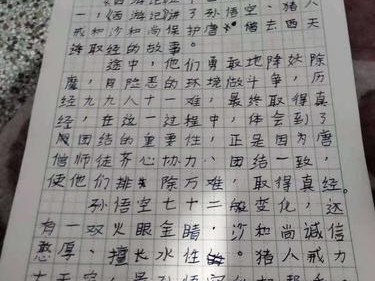 一，《西游记》讲了孙悟空、猪八
戒和沙和尚保护唐 猪去西天
进取经的故事。
途中，他们勇敢地降妖除
魔，冒险恶的环境做斗争，历
经九九八十一难，最终取得真
经，在这一过程中，体会到了
团结的重要性，正是因为唐
僧师徒齐心协力、团结一致，
使他们排 除万难，取得真经。
孙悟空七十二 变化，还
有一双火眼金睛，沙和尚诚信
憨厚、擅长水性的。猪八戒力